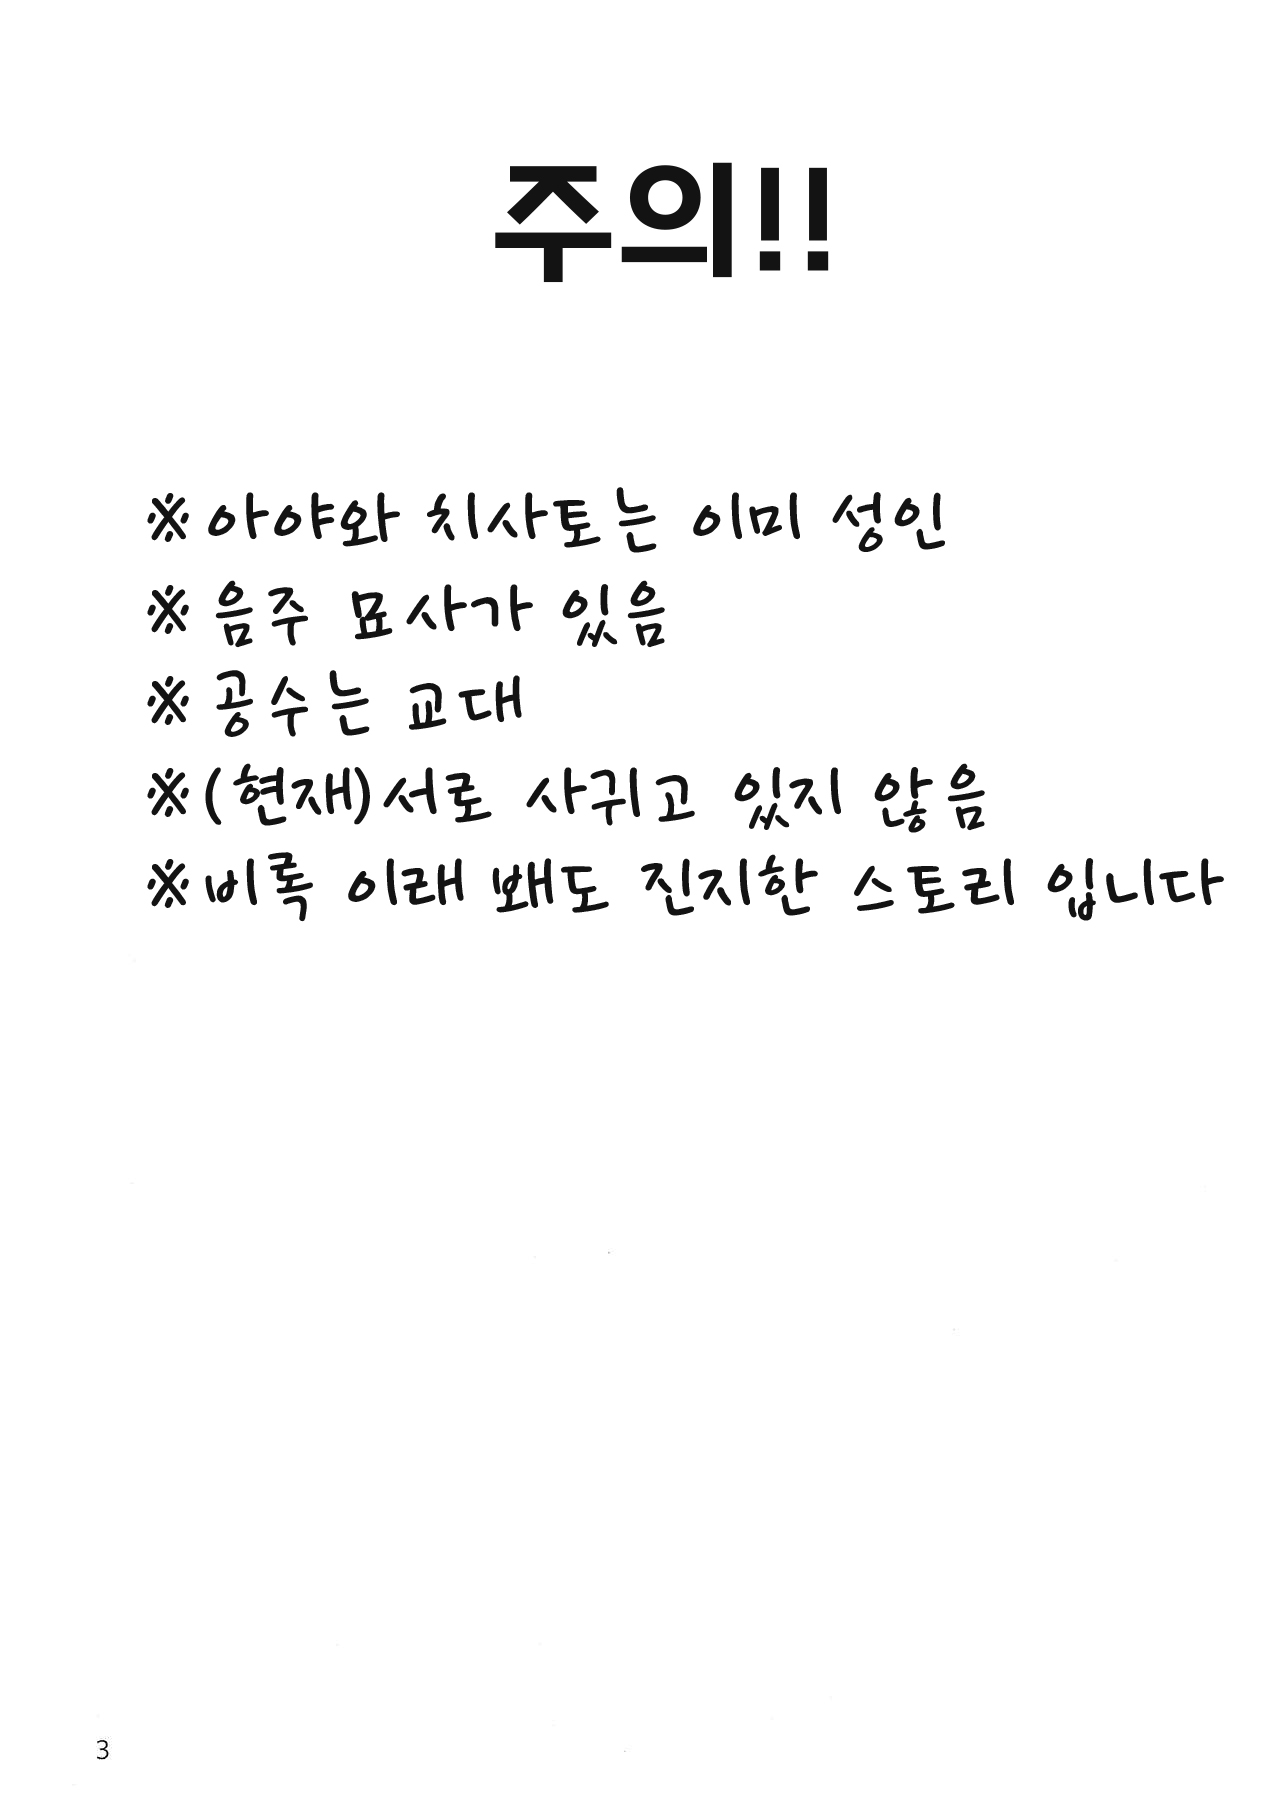 주의!!
※ 아야와 치사토는 이미 성인
※ 음주 묘사가 있음
※ 공수는 교대
※ (현재)서로 사귀고 있지 않음
※ 비록 이래 봬도 진지한 스토리 입니다
3